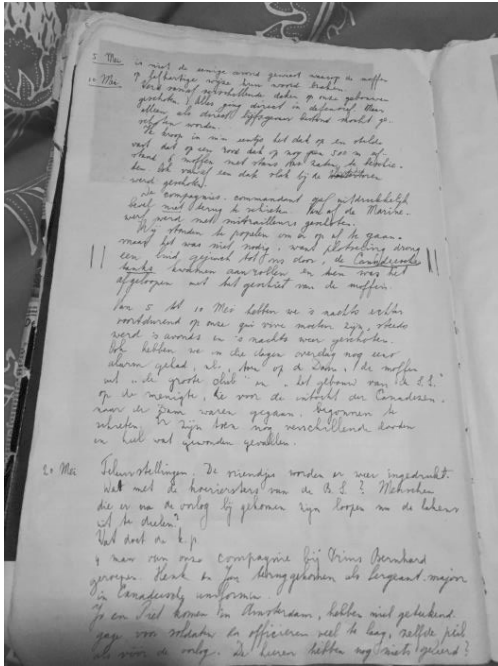 5 Mei is niet de eenige avond geweest waarop de moffen
10 Mei. op lafhartige wijze hun woord braken.
werd vanaf verschillende daken op onze gebouwen
geschoten. Alles ging direct in defensief. Maar
alleen als direct lijfsgevaar bestond mocht ge-
schoten worden.
Ik kroop in m'n eentje het dak op en stelde
vast dat op een rood dak op nog geen 500 m af-
stand 6 moffen met stens ons zaten te
ken. Ook vanaf een dak vlak bij de
werd geschoten.
De compagnies-commandant gaf uitdrukkelijk
bevel niet terug te schieten. Vanaf de Marine-
werf werd met mitrailleurs geschoten.
Wij stonden te popelen om er op af te gaan.
maar het was niet nodig, want plotseling drong
een luid gejuich tot ons door, de Canadeesche
tanks kwamen aanrollen en toen was het
afgeloopen met het geschiet van de moffen.
Van 5 tot 10 Mei hebben we 's nachts echter
voortdurend op onze qui vive moeten zijn, steeds
werd 's avonds en 's nachts weer geschoten.
Ook hebben we in die dagen overdag nog eens
alarm gehad, o.a. toen op de Dam, de moffen
uit "de groote club" en "het gebouw van de
op de menigte, die voor de intocht der Canadezen
naar de Dam waren gegaan, begonnen te
schieten. Er zijn toen nog verschillende dooden
en heel wat gewonden gevallen.
20 Mei Teleurstellingen. De vriendjes worden er weer ingedrukt.
Wat met de koeriersters van de B.S.? Menschen
die er na de oorlog bij gekomen zijn loopen nu de lakens
uit te deelen?
Wat doet de k.p.
4 man van onze compagnie bij Prins Bernhard
geroepen. Henk en Jan teruggekomen als Sergeant-majoor
in Canadeesch uniform.
Jo en Piet komen in Amsterdam, hebben niet geteekend.
gage voor soldaten en officieren veel te laag, zelfde peil
als vóór de oorlog. De heeren hebben nog niets geleerd?